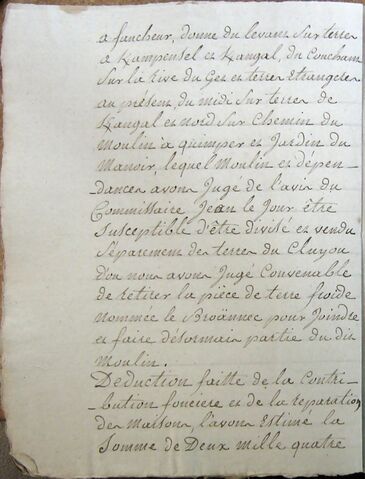 a faucheur, donne du levant Sur terres
a Kampensel et Kangal, du Couchant
Sur la Rive du Ger et terres Etrangeres
au présent, du midi Sur terres de
Kangal et nord Sur Chemin du
moulin à quimper et Jardin du
Manoir, lequel Moulin et dépen-
dances avons Jugé de l'avis du
Commissaire Jean le Jour être
Susceptible d'être divisé et vendu
Séparement des terres du Cluyou
D'ou nous avons Jugé Convenable
de retirer la pièce de terre froide
nommée le Broënnec pour Joindre
et faire désormais partie du dit
Moulin.
Deduction faitte de la Contri-
-bution fonciere et de la reparation
des Maisons, l'avons Estimé la
Somme de Deux Mille quatre